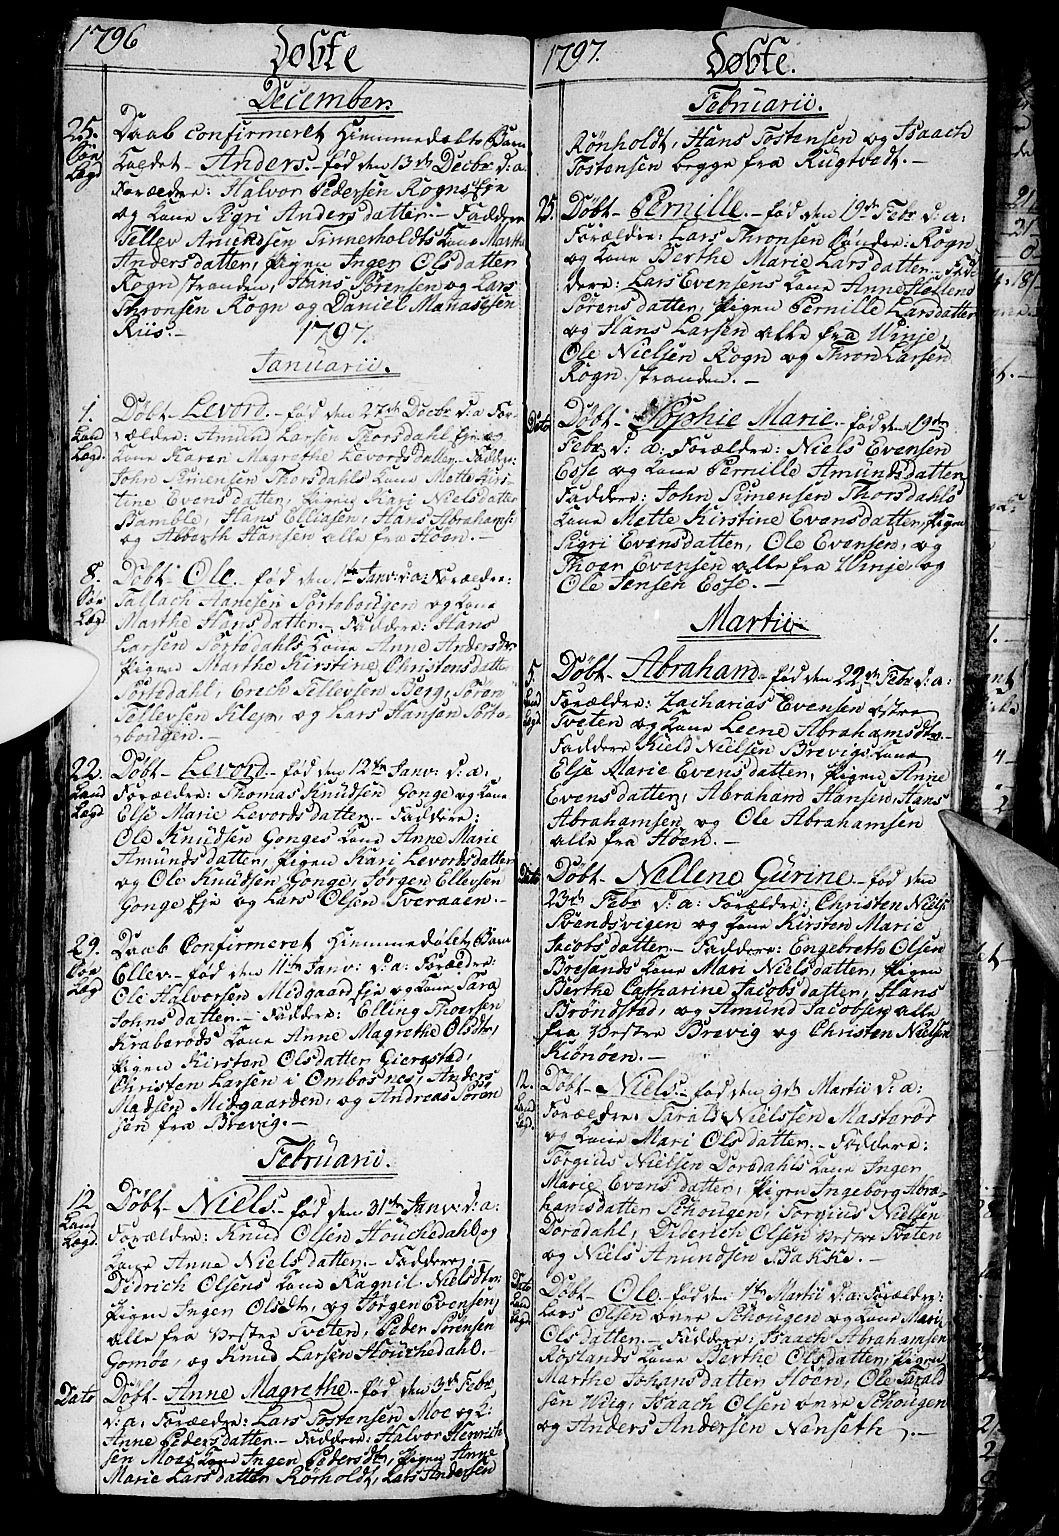 1796 Døbte
December.
25. Daab confirmeret Hiemmedøbte Barn
Søe Kaldet Anders. fød den 13de Decbr d: a.
Lægd Forældre: Halvor Pedersen Rogns Eje
og Kone Sigri Andersdatter. Faddere
Tellev Amundsen Tinnerholdts Kone Marthe
Andersdatter, Pigen Inger Olsdatter
Rogn stranden, Hans Sørensen og Lars
Thronsen Rogn og Daniel Mathæsen
Riis.
1797.
Januarii.
1. Døbt Levord. fød den 27de Decbr d: a For-
Land ældre: Amund Larsen Thorsdahl Eje og
Lægd. Kone Karen Magrethe Levordsdatter. Fadder:
John Simensen Thorsdahls Kone Mette Kirs-
tine Evensdatter, Pigen Kari Nielsdatter
Bamble, Hans Elliasen, Hans Abrahams:
og Hansen alle fra Høen.
8. Døbt Ole fød den 1ste Janv: d: a: Forældre:
Søe Tallach Hansen Sortebougen og Kone
Lægd Marthe Hansdatter. Faddere: Hans
Larsen Tortedahls Kone Anne Andersdtr
Pigen Marthe Kirstine Christensdatter
Tortedahl, Erech Tellevsen Berg, Søren
Tellevsen Kleja, og Lars Hansen Sorte-
bougen.
22. Døbt Levord fød den 12te Janv: d: a:
Land Forældre: Thomas Knudsen Gonge og Kone
Lægd Else Marie Levordsdatter. Faddere:
Ole Knudsen Gonges Kone Anne Marie
Amundsdatter, Pigen Kari Levordsdatter
og Ole Knudsen Gonge, Jørgen Ellevsen
Gonge Eje og Lars Olsen Tveraaen.
29. Daab Confirmeret Hiemmedøbt Barn
Søe Ellev. fød den 11te Janv: d: a: Forældre:
Lægd Ole Halvorsen Midgaard Eje og Kone Sara
Johnsdatter. Faddere: Elling Thoersen
Kraberøds Kone Anne Magrethe Olsdtr,
Pigen Kirsten Olsdatter Gierrestad,
Christen Larsen i Ombosnes, Anders
Madsen Midgaarden, og Andreas Søren
sen fra Brevig.
Februarii.
12 Døbt Niels fød den 31te Janv: d: a:
Land Forældre: Knud Olsen Houchedahl og
Lægd. Kone Anne Nielsdatter. Faddere:
Didrich Olsens Kone Ragnil Nielsdtr:
Pigen Inger Olsdtr, og Jørgen Evensen,
alle fra Vestre Tveten, Peder Sørensen
Gomøe, og Knud Larsen Houchedahl.
Dato Døbt Anne Magrethe fød den 3de Febr
d: a: Forældre: Lars Tostensen Moe og K:
Anne Pedersdatter. Faddere: Halvor Henrich
sen Moes Kone Inger Pedersdtr, Pigen Anne
Marie Larsdatter Rørholdt, Lars Andersen
1797. Døbte.
Februarii.
Rønholdt, Hans Tostensen og Isaach
Tostensen begge fra Rugtvedt.
25. Døbt Pernille. fød den 19de Febr d: a:
Forældre: Lars Thronsen Sønder: Rogn
og Kone Berthe Marie Larsdatter. Fad-
dere: Lars Evensens Kone Anne Hellene
Sørensdatter, Pigen Pernille Larsdatter
og Hans Larsen alle fra Winje,
Ole Nielsen Rogn og Thron Larsen
Rogn stranden.
Dato Døbt Sophie Marie. fød den 19de
Febr d: a. Forældre: Niels Evensen
Esse og Kone Pernille Amundsdatter
Faddere: John Simensen Thorsdahls
Kone Mette Kirstine Evensdatter, Pigen
Sigri Evensdatter, Ole Evensen, og
Thoer Evensen alle fra Winje og
Ole Jensen Esse.
Martii
5. Døbt Abraham fød den 22de Febr d: a:
Land Forældre: Zacharias Evensen østre
Lægd Tveten og Kone Leene Abrahamsdtr.
Faddere Kield Nielsen Brevigs Kone
Else Marie Evensdatter, Pigen Anne
Evensdatter, Abraham Hansen, Hans
Abrahamsen og Ole Abrahamsen
alle fra Høen.
Dato Døbt Nellene Gurine fød den
23de Febr d: a: Forældre: Christen Niels:
Svendsvigen og Kone Kirsten Marie
Jacobsdatter. Faddere: Engebreth Olsen
Bresands Kone Mari Nielsdatter, Pigen
Berthe Catharine Jacobsdatter, Hans
Brøndstad, og Amund Jacobsen alle
fra Vestre Brevig og Christen Nielsen
Kiønøen.
12. Døbt Niels fød den 9de Martii d: a:
Land Forældre: Tarald Nielssen Masterød
Lægd. og Kone Mari Olsdatter. Faddere:
Torgius Nielsen Dordahls Kone Inger
Marie Evensdatter, Pigen Ingeborg Abra-
hamsdatter Schougen, Torgius Nielsen
Dordahl, Diderich Olsen Vestre Tveten
og Niels Amundsen Bakke.
Dato Døbt Ole fød den 1ste Martii d: a: Forældre:
Land Lars Olsen øvre Schougen og Kone Mari
Lægd Olsdatter. Faddere: Isaach Abrahamsen
Røslands Kone Berthe Olsdatter, Pigen
Marthe Johansdatter Hoen, Ole Tarald
sen Weig, Isaach Olsen øvre Schougen
og Anders Andersen Nenseth.